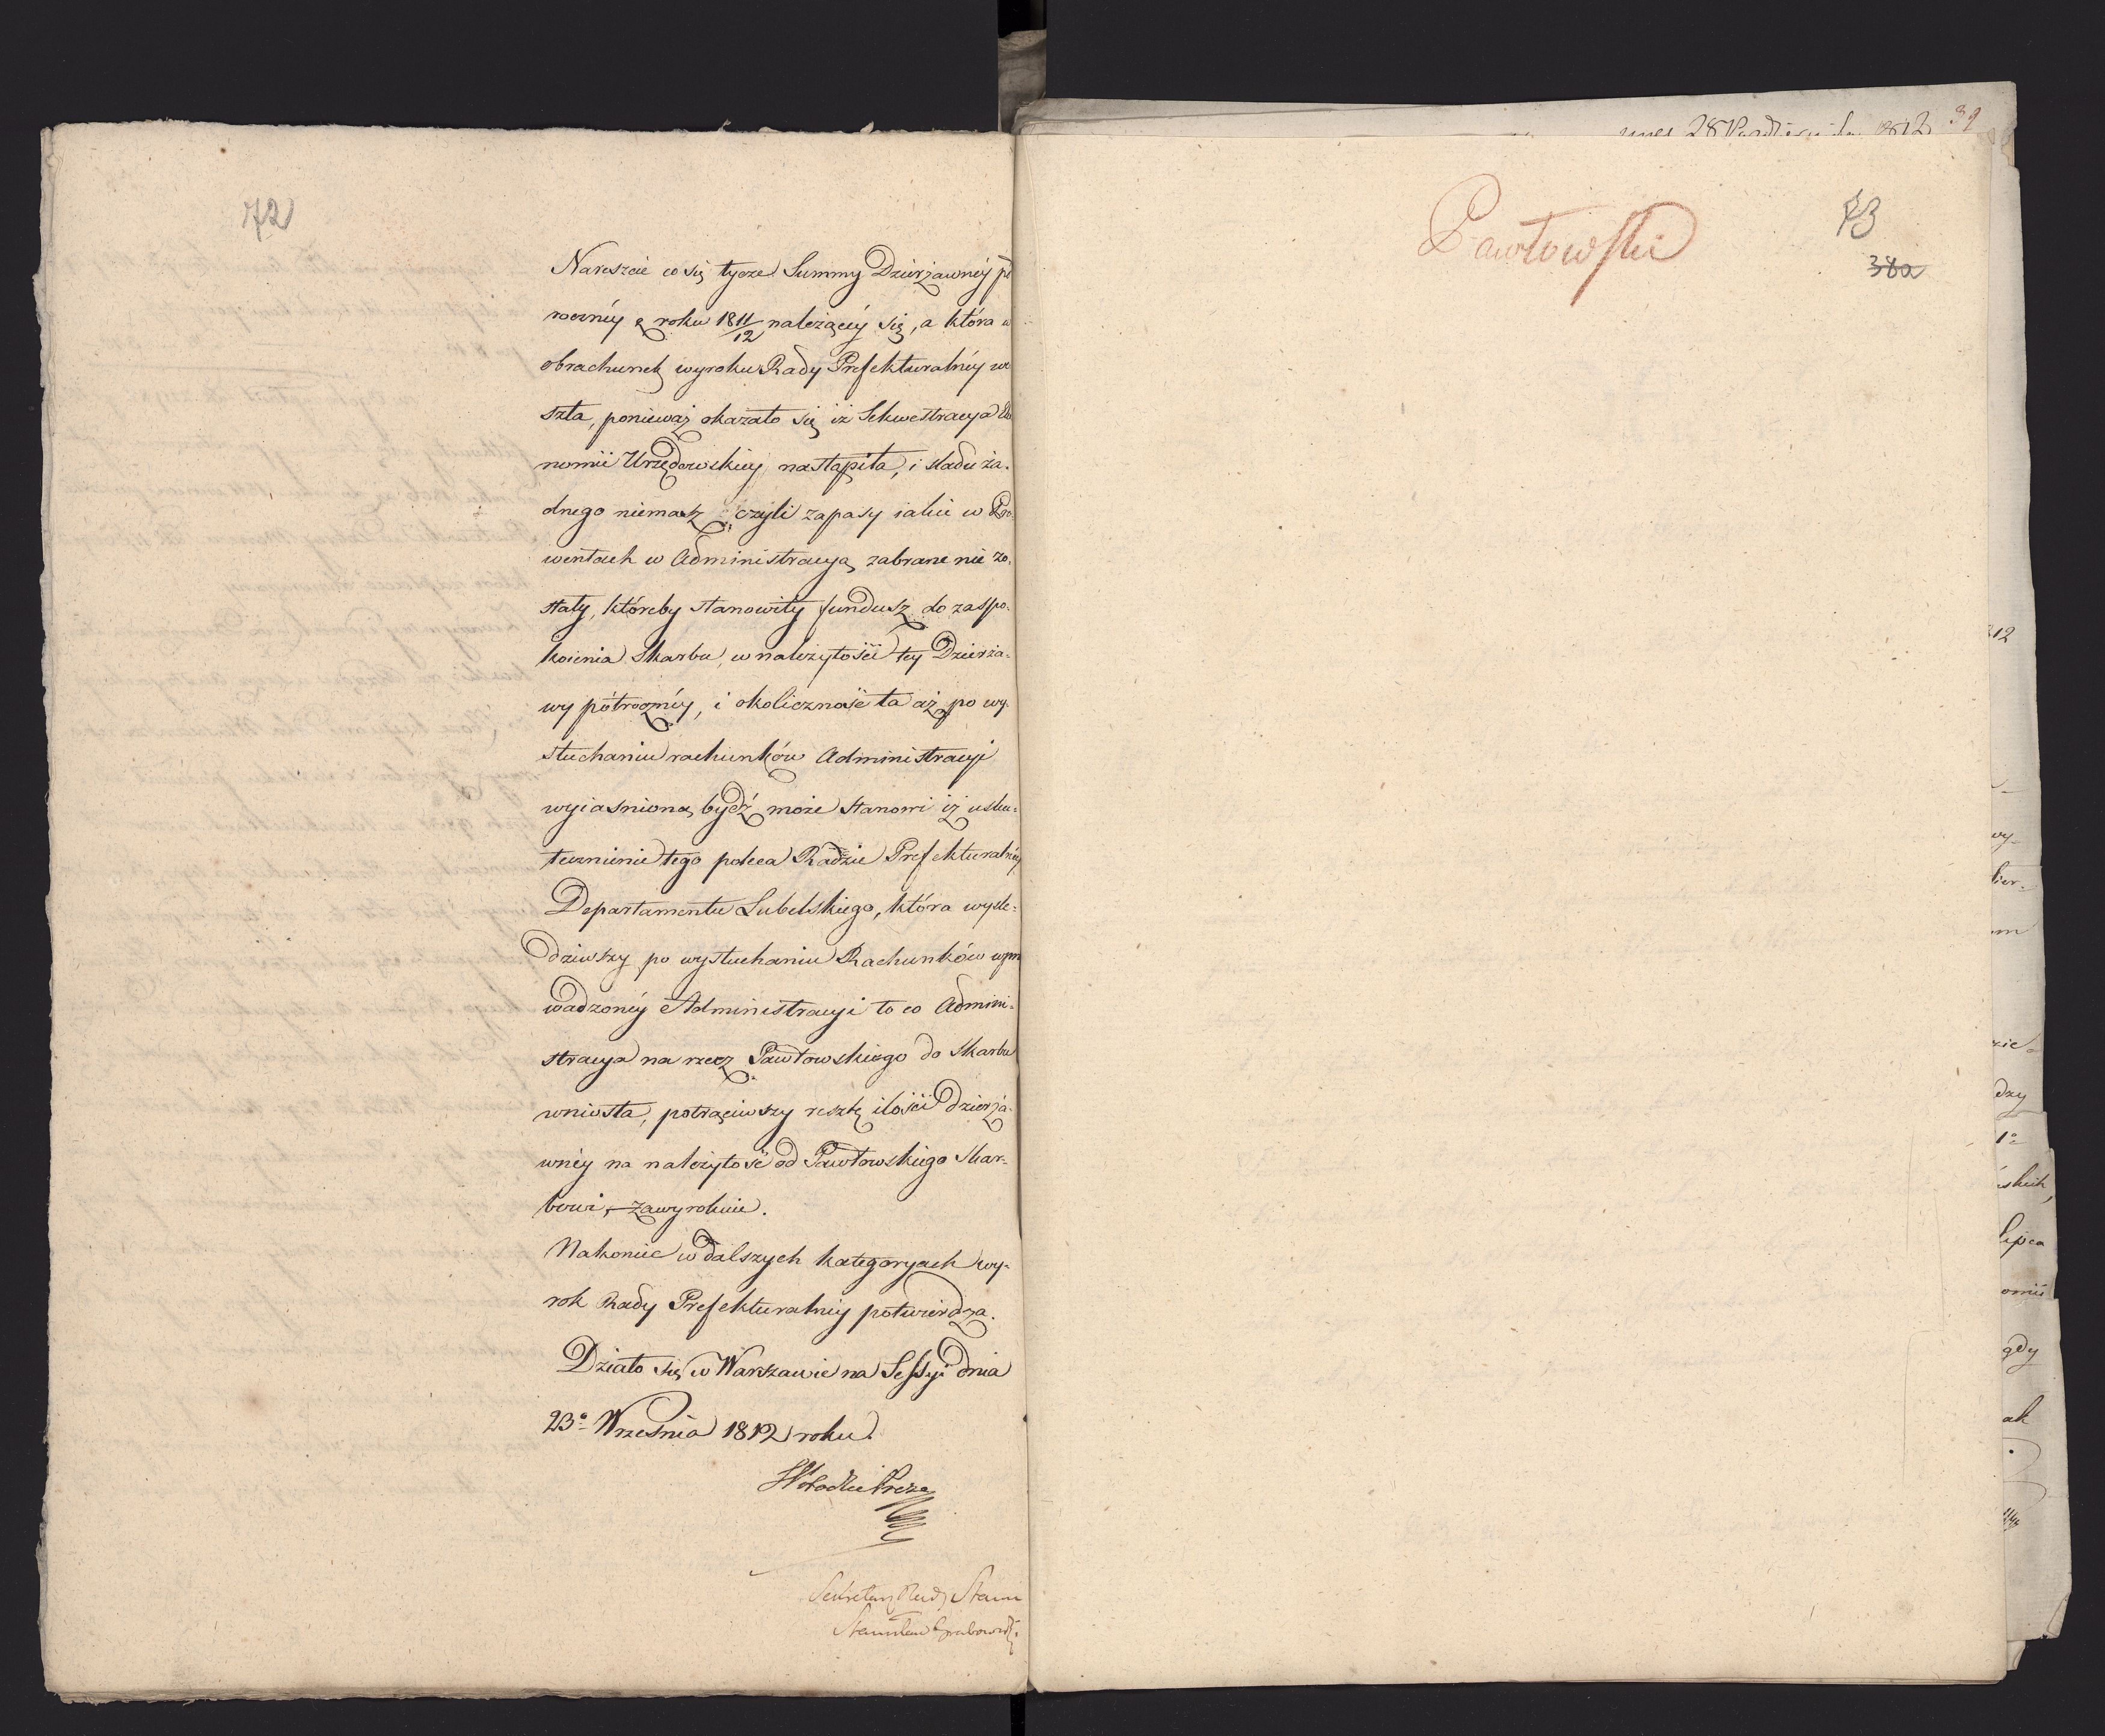 72
Nareszcie co się tycze Summy Dzierżawnéy
roczniy z roku 1811/12 należącéy się, a która
obrachunek wyroku Rady Prefekturalnéy
szła, ponieważ okazało się iż Sekwestracya
nomii Urzędowskiey nastąpiła, i śladu ża-
dnego niemasz czyli zapasy iakie w Pro-
wentach w Administracyą zabrane nie zo-
stały, któreby stanowiły fundusz do zaspo-
koienia Skarbu, w należytości tey Dzierża-
wy półrocznéy, i okoliczność ta aż po wy-
słuchaniu rachunków Administracyi
wyiaśnioną bydź może stanowi iż usku-
tecznienie tego poleca Radzie Prefekturalnéy
Departamentu Lubelskiego, która wyśle-
dziwszy po wysłuchaniu Rachunków
wadzonéy Administracyi to co Admini-
stracya na rzecz Pawłowskiego do Skarbu
wniosła, potrąciwszy resztę ilości dzierża-
wnéy na należytość od Pawłowskiego Skar-
bowi, zawyrokuie.
Nakoniec w dalszych kategoryach wy-
rok Rady Prefekturalney potwierdza.
Działo się w Warszawie na Sessyi dnia
23o Września 1812 roku.
Sekretarz Rady Stanu
Stanisław Grabowski
39
28 Października 1812
Pawłowski
73
38a